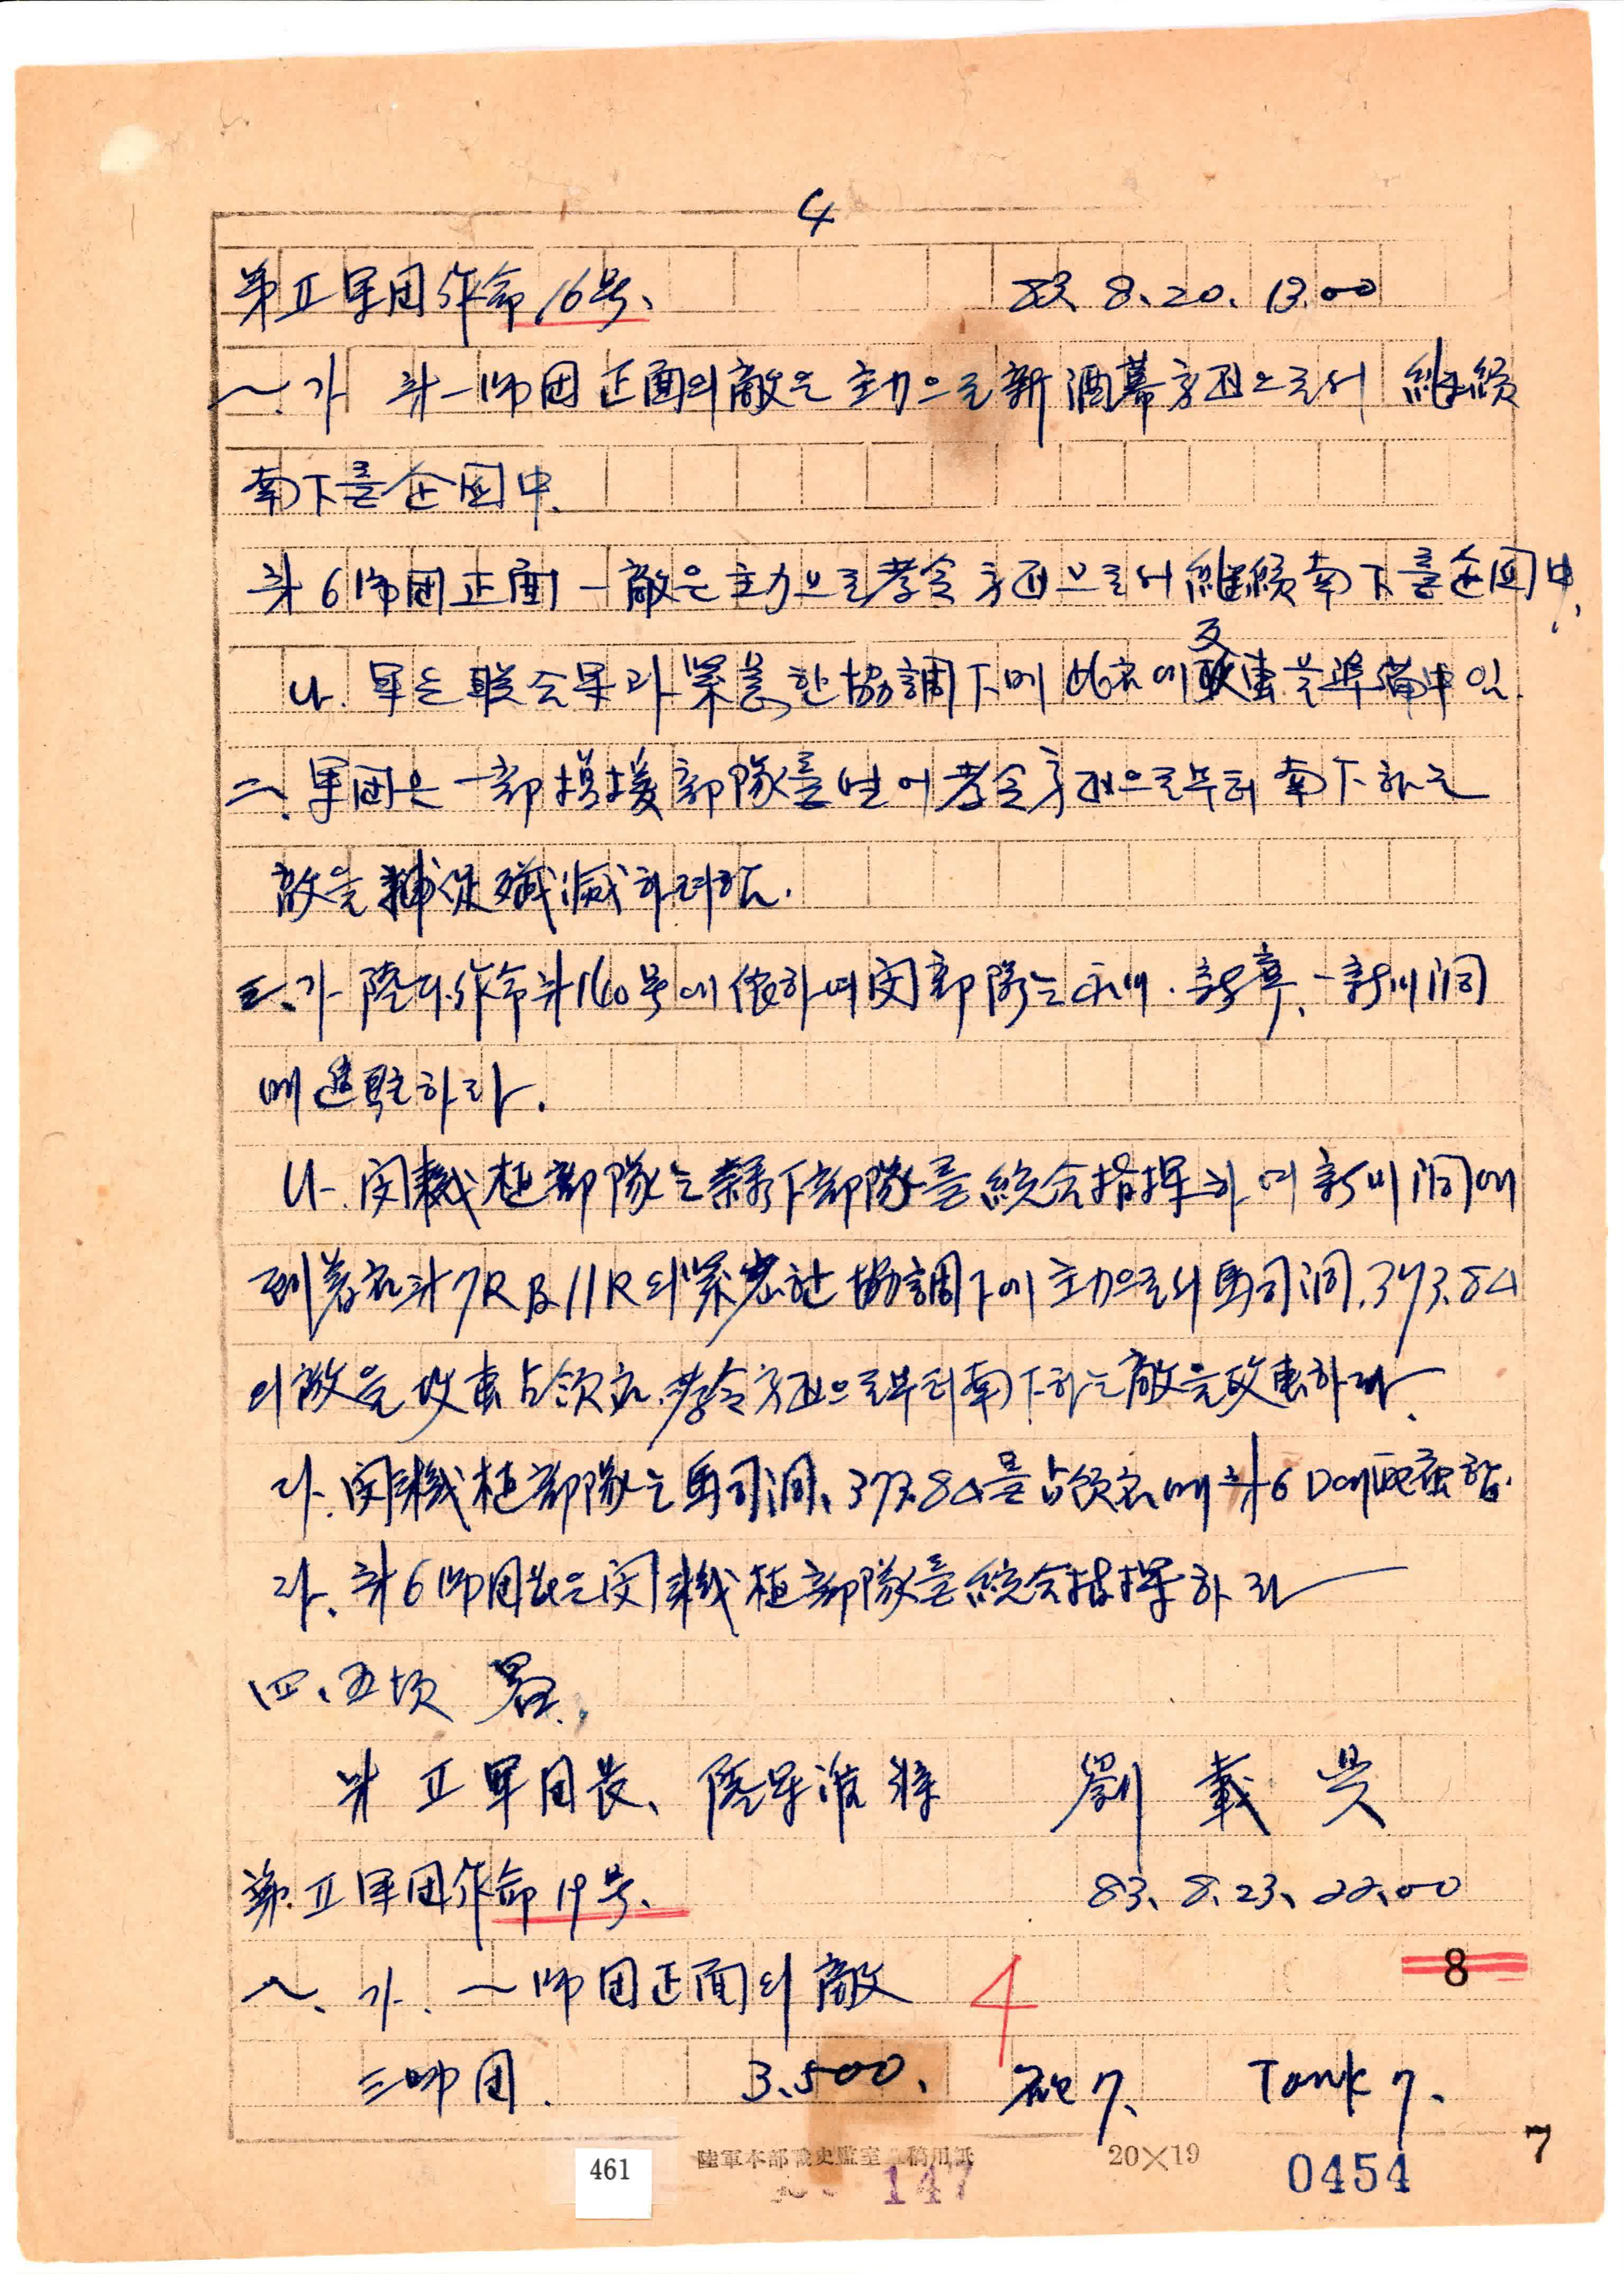 4
第Ⅱ軍団作命16号、 83、8、20、13.00
一、가 第一師団正面의敵은 主力으로新酒幕方面으로서 継続
南下를企図中、
第6師団正面一敵은主力으로孝令方面으로서継続南下를企図中、
나. 軍은 联合軍과緊密한協調下에 此処에反攻擊을準備中임.
二、軍団은 一部増援部隊를 넣어孝令方面으로부터 南下하는
敵을捕促殲滅하려함.
三、가 陸本作命第160号에依하여閔部隊는 新洞
에進駐하라.
나. 閔機植部隊는隷下部隊를統合指揮하여 洞에
到着한第7R及11R의緊密한協調下에主力으로서馬司洞.373.84
의敵을攻擊占領後、孝令方面으로부터南下하는敵을攻擊하라
다. 閔機植部隊는馬司洞、373.84를占領後에第6D에配属함.
라、第6師団長은閔機植部隊를統合指揮하라
四、五項 畧、
第Ⅱ軍団長、陸軍准将 劉載興
第Ⅱ軍団作命19号、 83、8、23、22.00
一、가. 一師団正面의敵
4
8
三師団. 3.500. 砲7、 Tank 7.
461
陸軍本部戰史監室 稿用紙
20×19
147
0454
7